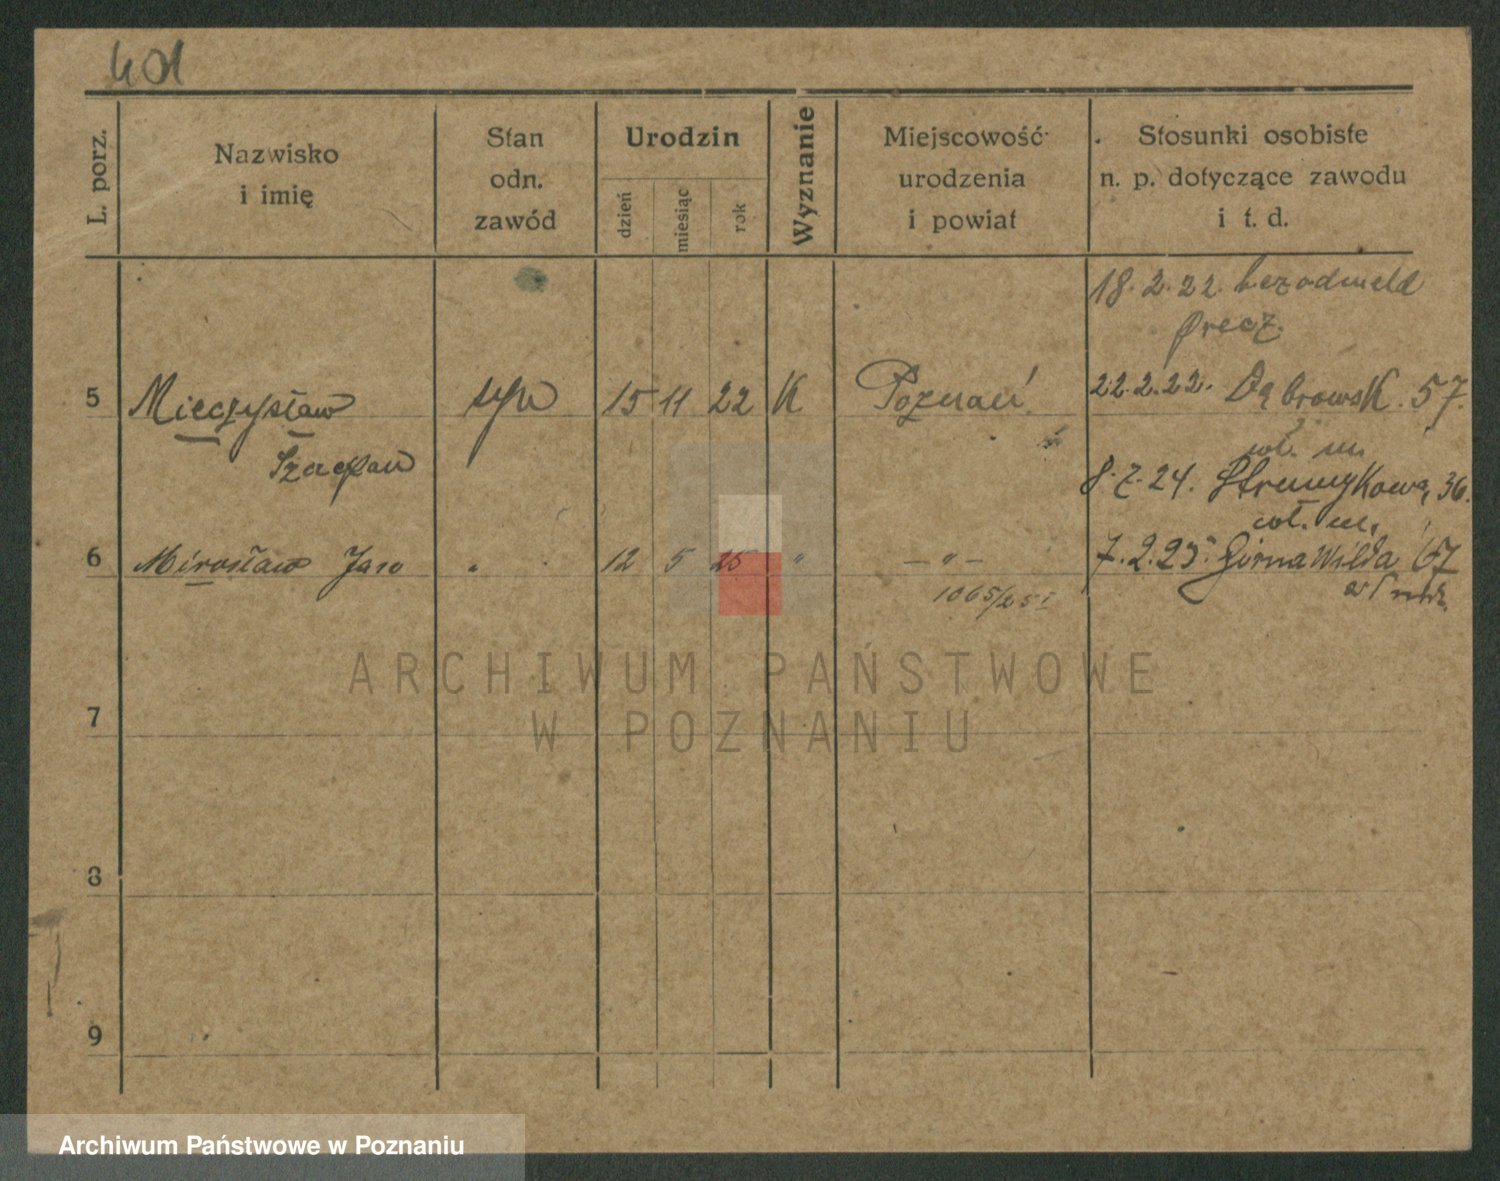 401
L. porz.
Nazwisko
i imię
Stan
odn.
zawód
Urodzin
dzień
miesiąc
rok
Wyznanie
Miejscowość
urodzenia
i powiat
Stosunki osobiste
n. p. dotyczące zawodu
i t. d.
18.2.22 bezodmeld
precz.
5 Mieczysław syn 15 11 22 K Poznań 22.2.22. Dąbrowsk. 57.
Szczepan
wł. m.
8.7.24. Strumykowa, 36.
wł. m.
6 Mirosław 12 5 25 " — " — 7.2.25. Górna Wilda 67
1065/25 I
7
8
9
ARCHIWUM PAŃSTWOWE
W POZNANIU
Archiwum Państwowe w Poznaniu